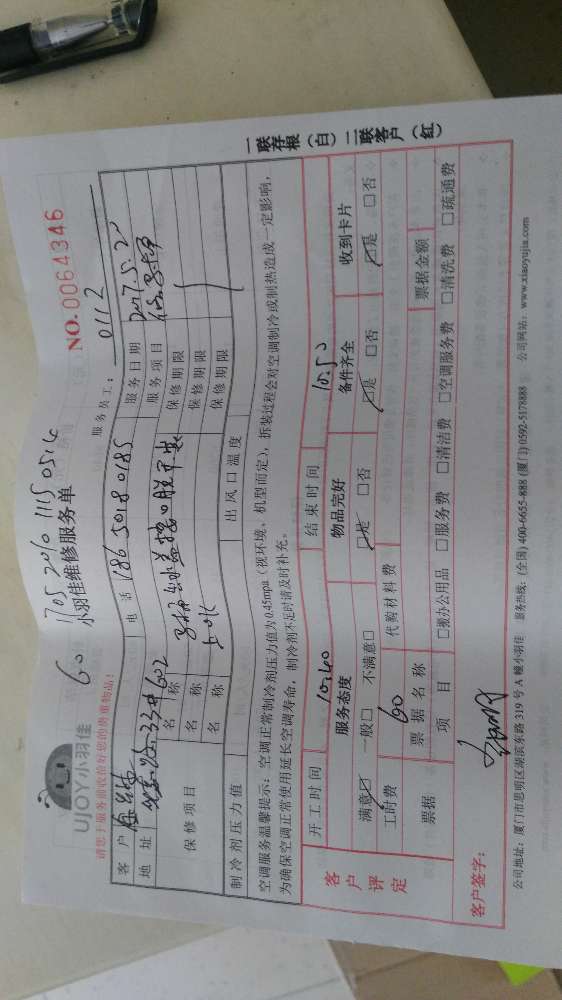 60 1705 2010 1115 0514
UJOY小羽佳
小羽佳维修服务单
NO.0064346
请您于服务前收拾好您的贵重物品!
服务员工: 0112
客户 电话 18650180185 服务日期 2017.5.21
地址 33# 602 服务项目
保修项目
名称 保修期限
名称 保修期限
名称 保修期限
制冷剂压力值 出风口温度
空调服务温馨提示: 空调正常制冷剂压力值为0.45mpa (视环境、机型而定), 拆装过程会对空调制冷或制热造成一定影响,
为确保空调正常使用延长空调寿命, 制冷剂不足时请及时补充。
客户评定
开工时间 10:40 结束时间 10:50
服务态度 物品完好 备件齐全 收到卡片
满意☑ 一般□ 不满意□ ☑是 □否 ☑是 □否 ☑是 □否
工时费 60 代购材料费
票据 票据名称 票据金额
项目 □搬办公用品 □服务费 □清洁费 □空调服务费 □清洗费 □疏通费
客户签字:
公司地址: 厦门市思明区湖滨东路 319 号 A 幢小羽佳 服务热线: (全国) 400-6655-888 (厦门) 0592-5178888 公司网站: www.xiaoyujia.com
一联存根(白) 二联客户(红)